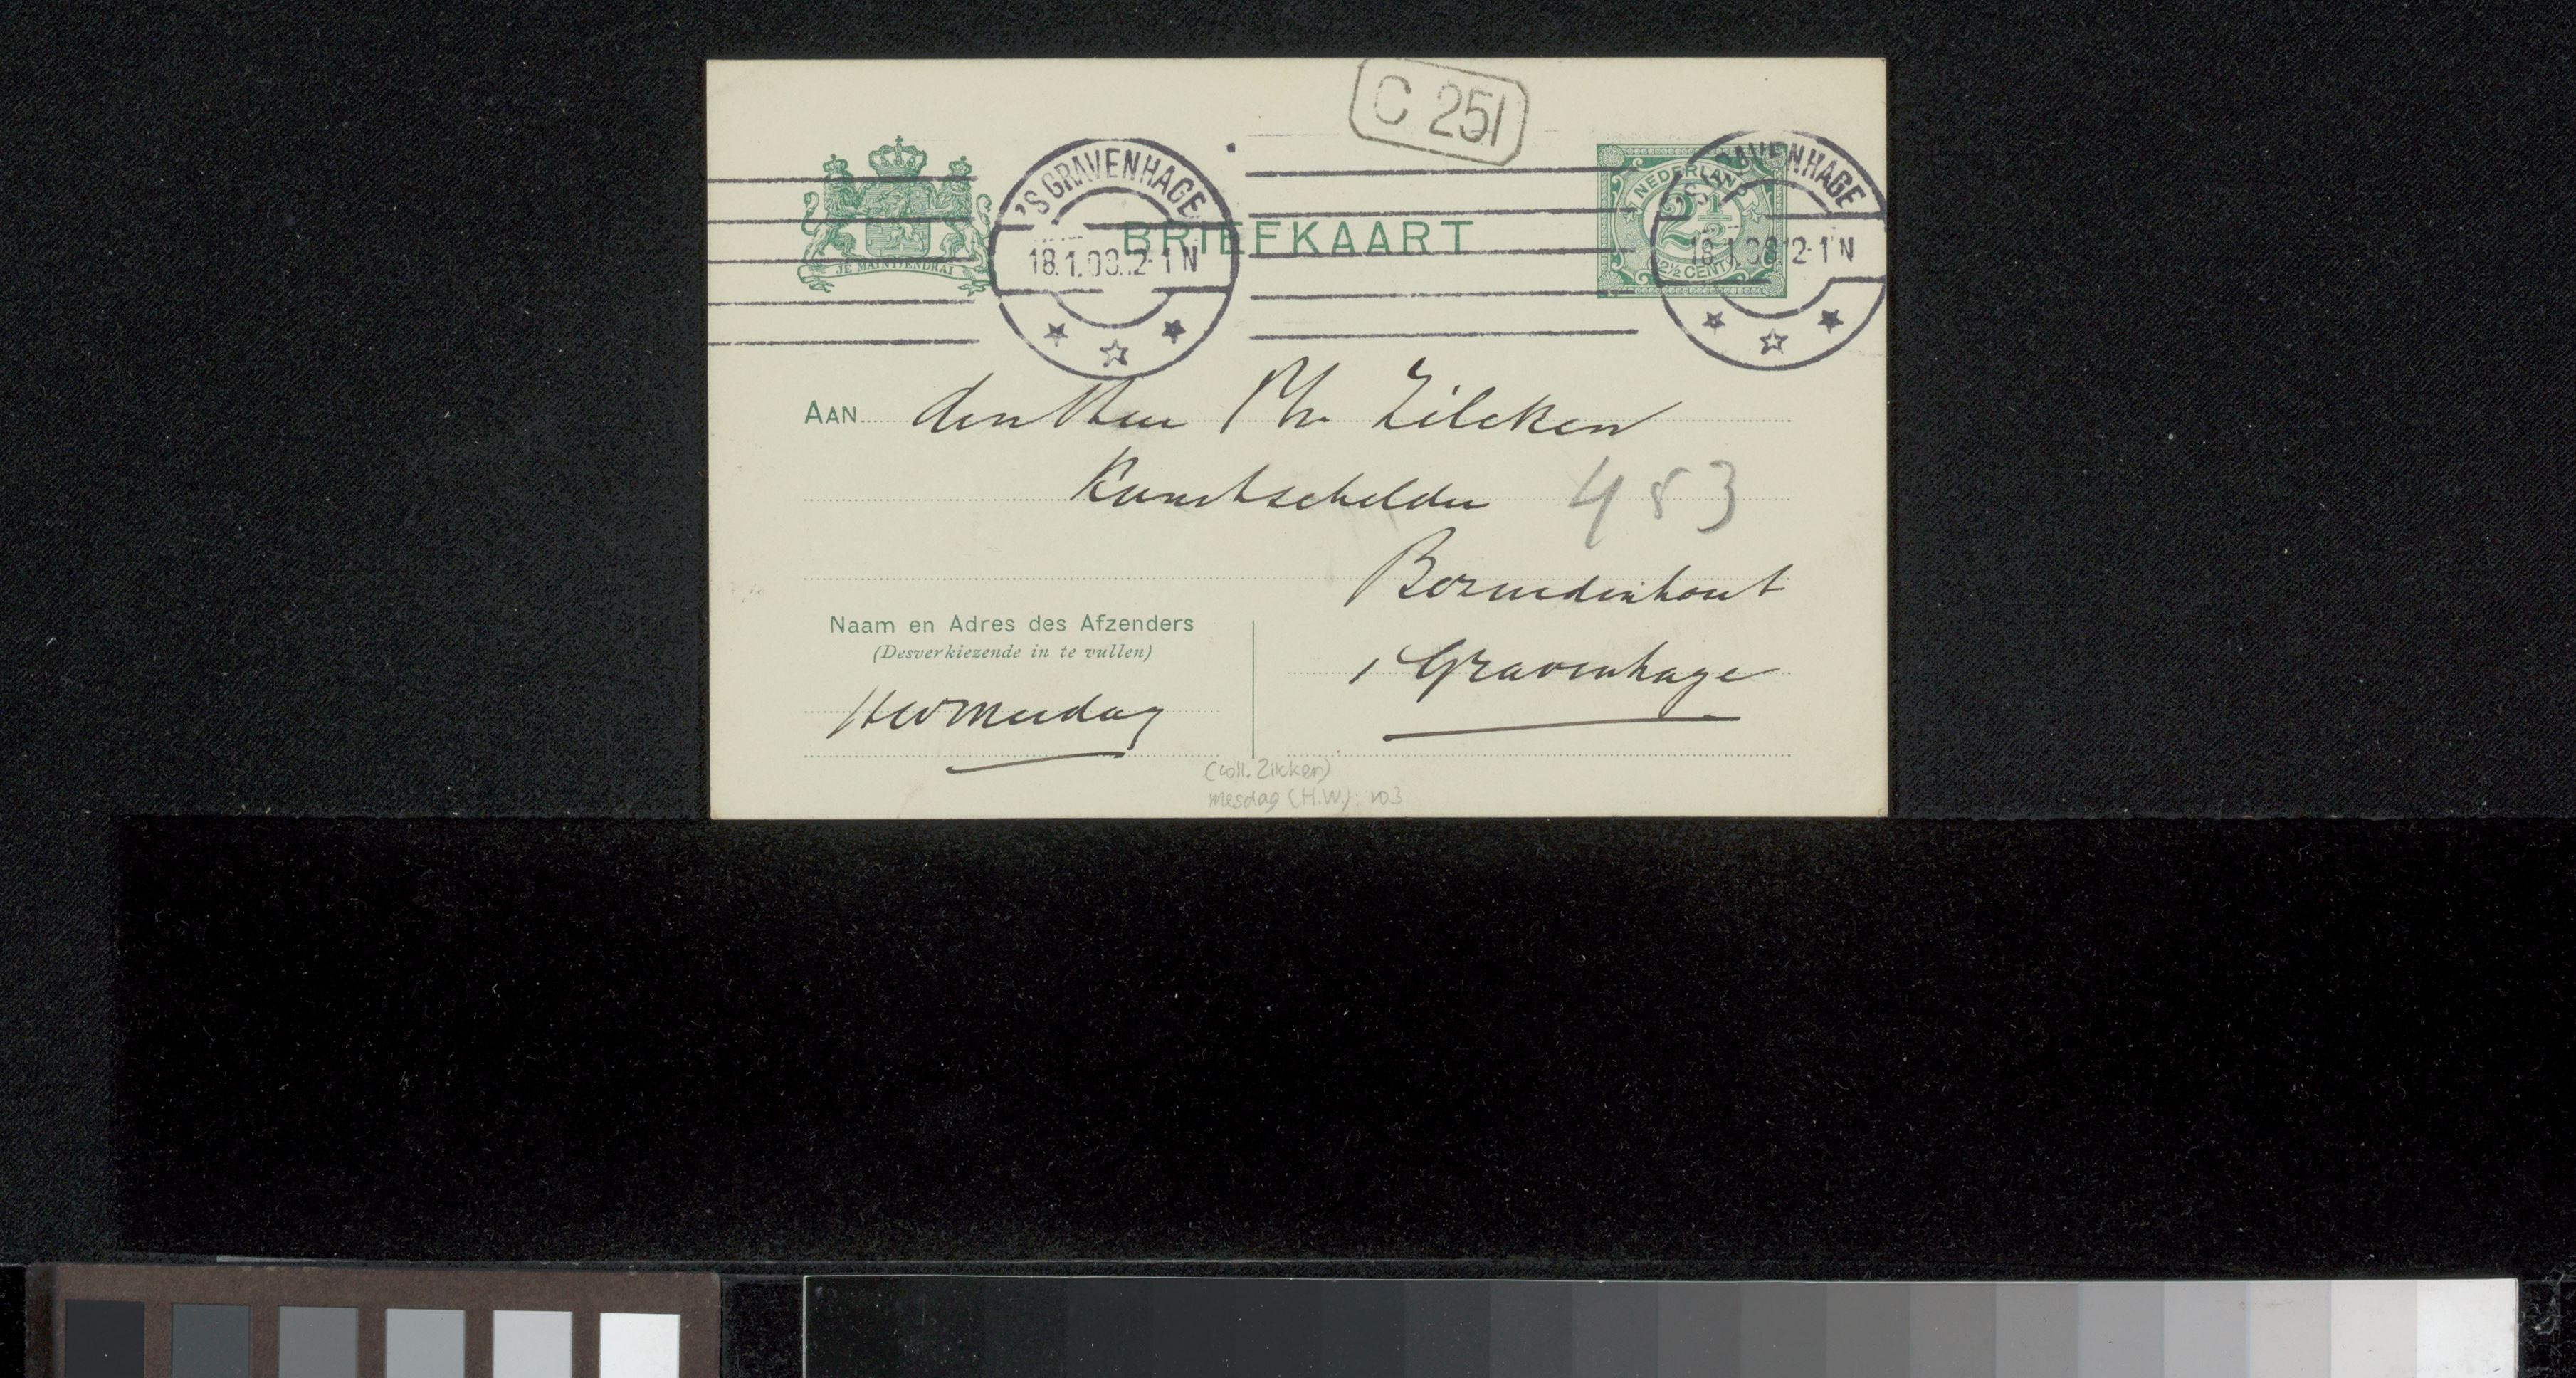 C 251
'S GRAVENHAGE
18.1.08.12-1 N
JE MAINTIENDRAI
BRIEFKAART
NEDERLAND
2½
2½ CENT
'S GRAVENHAGE
18.1.08.12-1 N
AAN den Heer Ph. Zilcken
Kunstschilder 453
Bezuidenhout
's Gravenhage
Naam en Adres des Afzenders
(Desverkiezende in te vullen)
HW Mesdag
(coll. Zilcken)
Mesdag (H.W.): 103